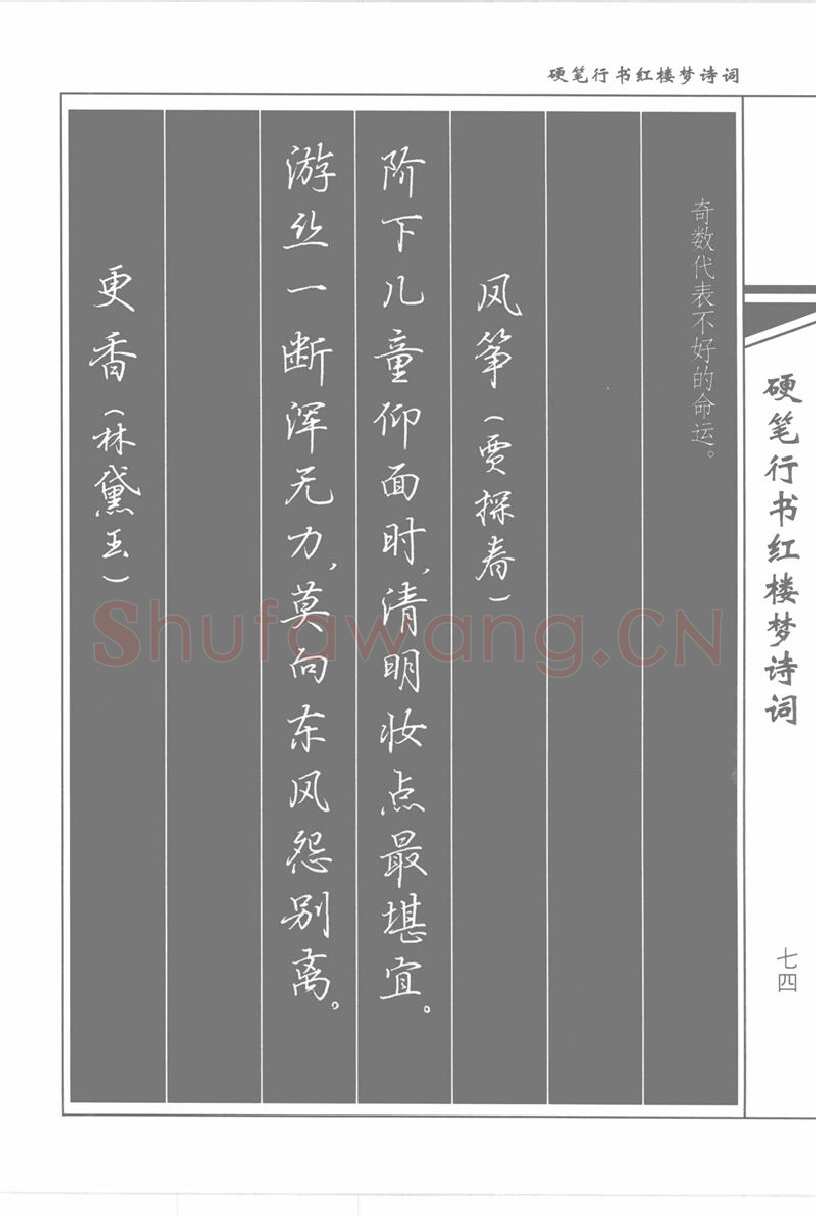 硬笔行书红楼梦诗词
奇数代表不好的命运。
风筝(贾探春)
阶下儿童仰面时,清明妆点最堪宜。
游丝一断浑无力,莫向东风怨别离。
更香(林黛玉)
硬笔行书红楼梦诗词
七四
Shufawang.CN